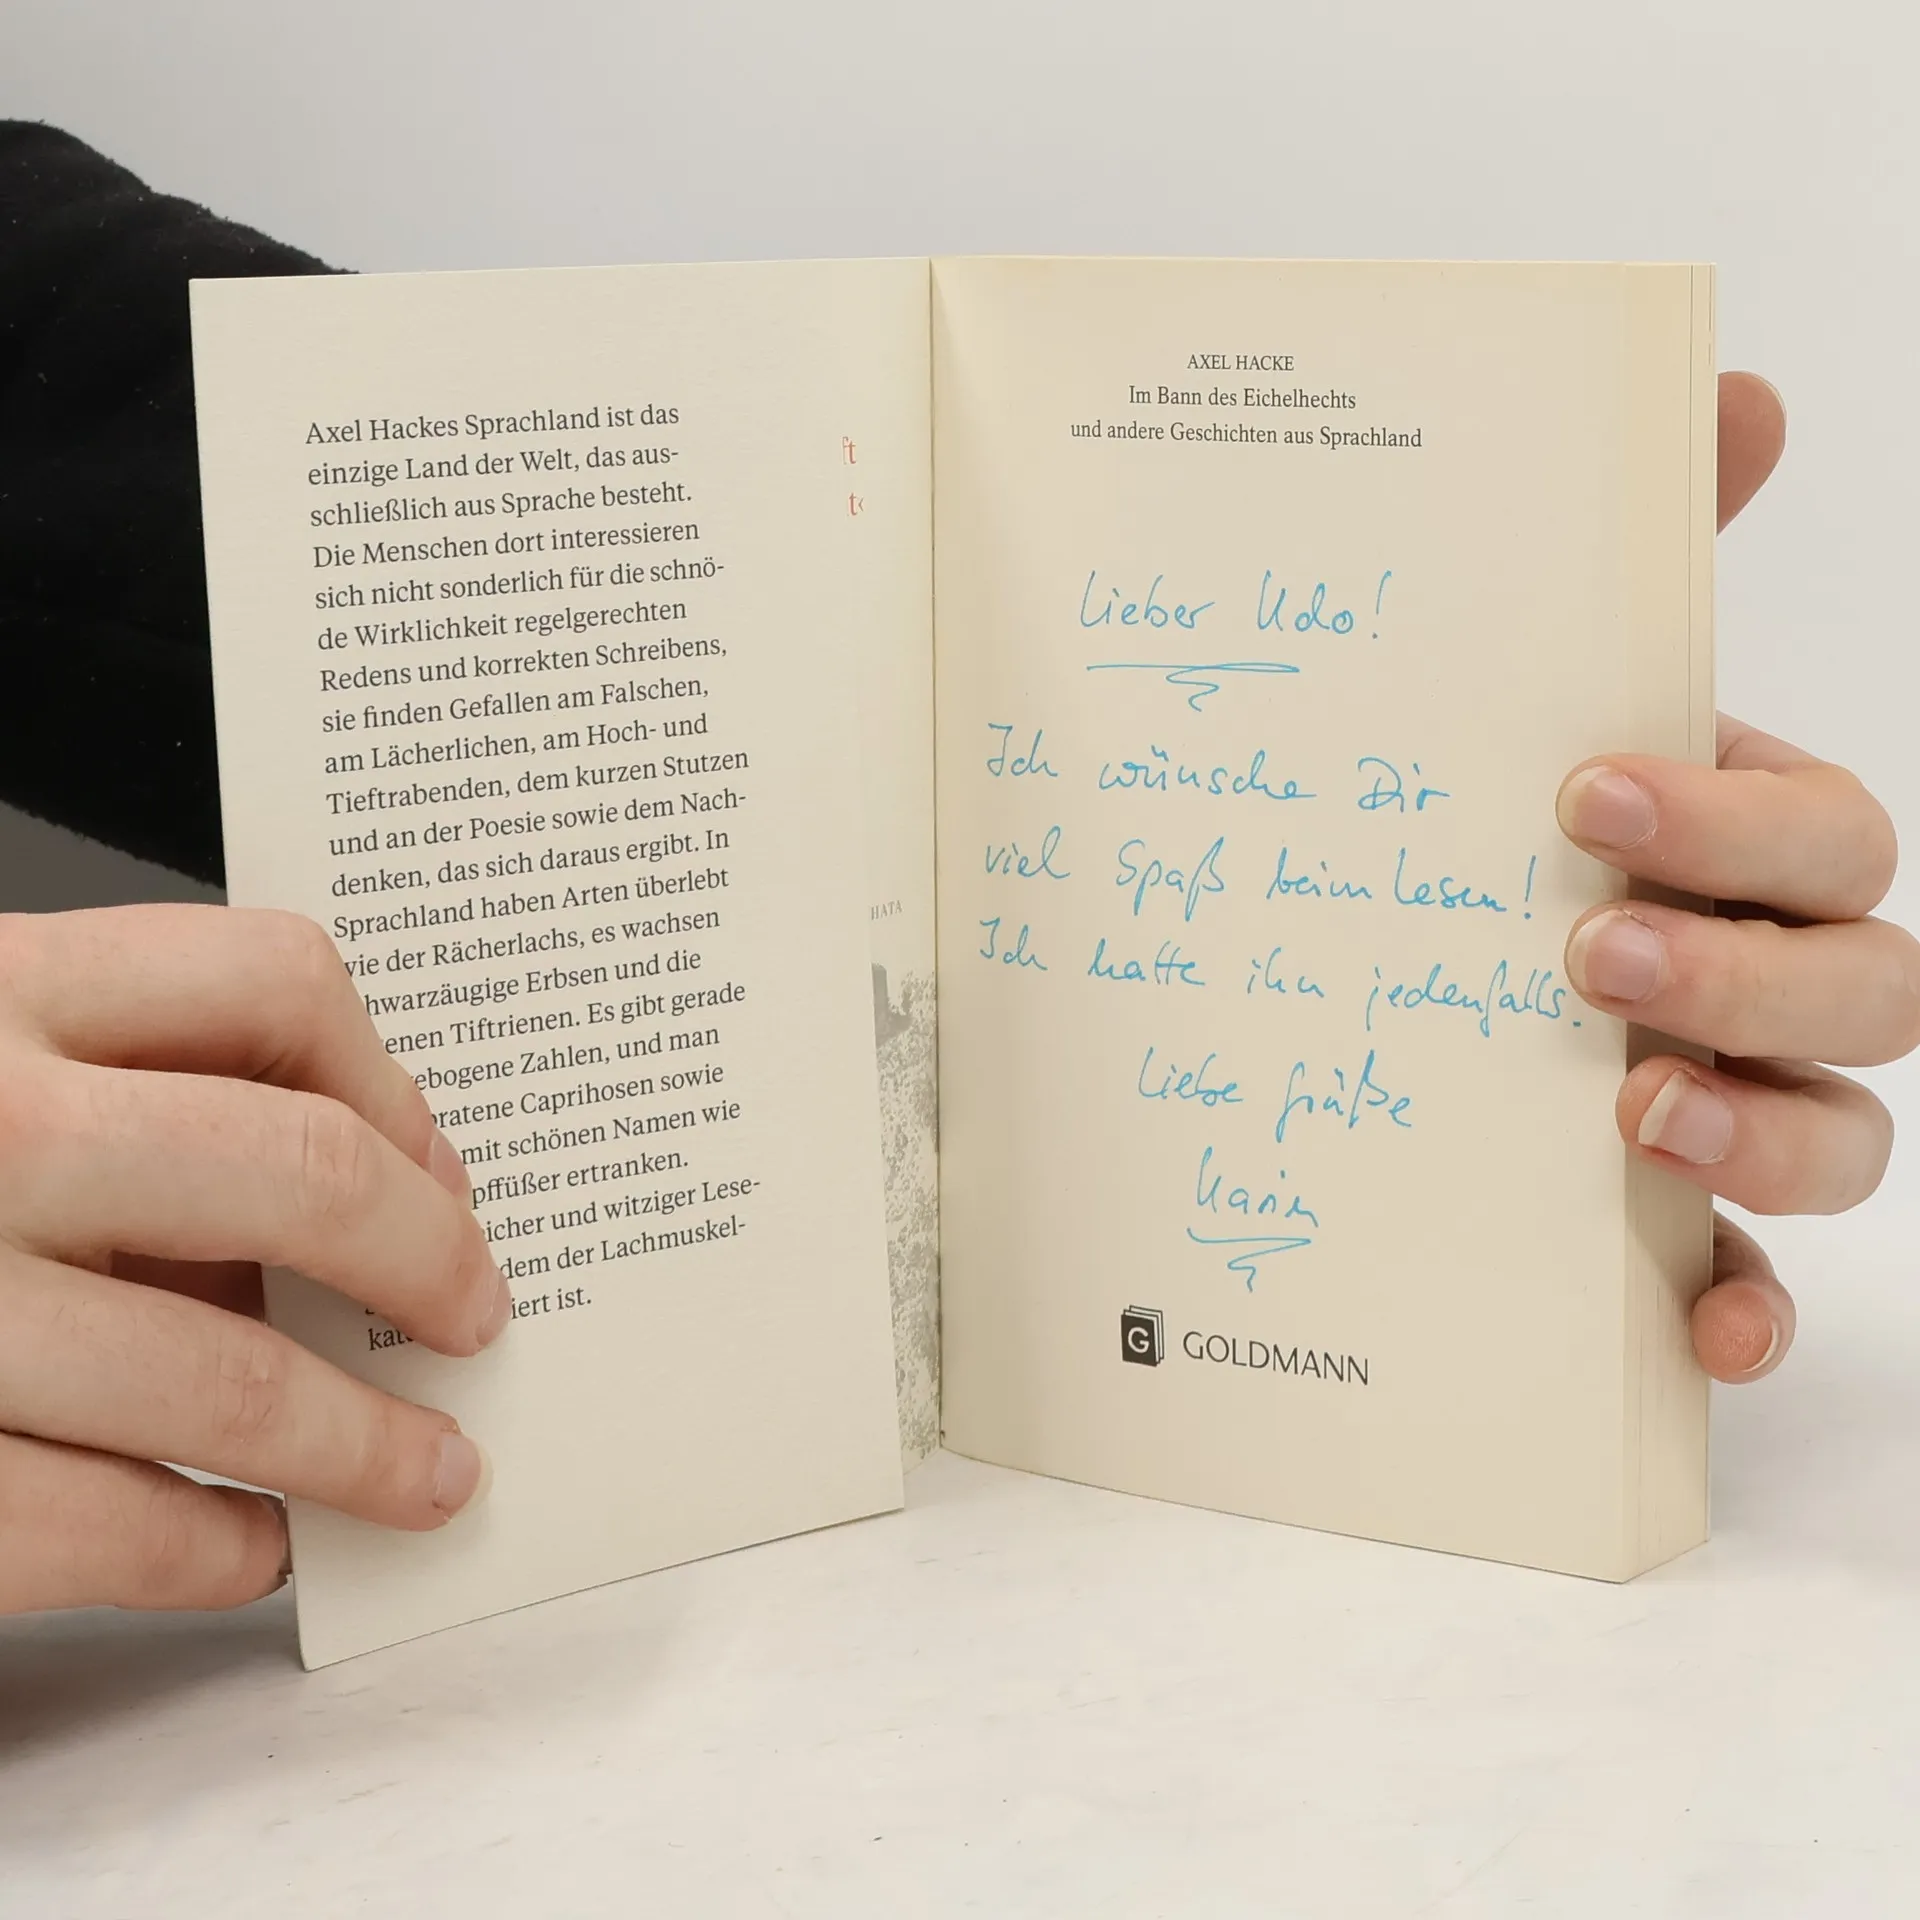 Axel Hackes Sprachland ist das
einzige Land der Welt, das aus-
schließlich aus Sprache besteht.
Die Menschen dort interessieren
sich nicht sonderlich für die schnö-
de Wirklichkeit regelgerechten
Redens und korrekten Schreibens,
sie finden Gefallen am Falschen,
am Lächerlichen, am Hoch- und
Tieftrabenden, dem kurzen Stutzen
und an der Poesie sowie dem Nach-
denken, das sich daraus ergibt. In
Sprachland haben Arten überlebt
wie der Rächerlachs, es wachsen
hwarzäugige Erbsen und die
enen Tiftrienen. Es gibt gerade
ebogene Zahlen, und man
ratene Caprihosen sowie
mit schönen Namen wie
pffüßer ertranken.
icher und witziger Lese-
dem der Lachmuskel-
iert ist.
ft
t
HATA
AXEL HACKE
Im Bann des Eichelhechts
und andere Geschichten aus Sprachland
Lieber Udo!
Ich wünsche Dir
viel Spaß beim Lesen!
Ich hatte ihn jedenfalls.
Liebe Grüße
Karin
G GOLDMANN